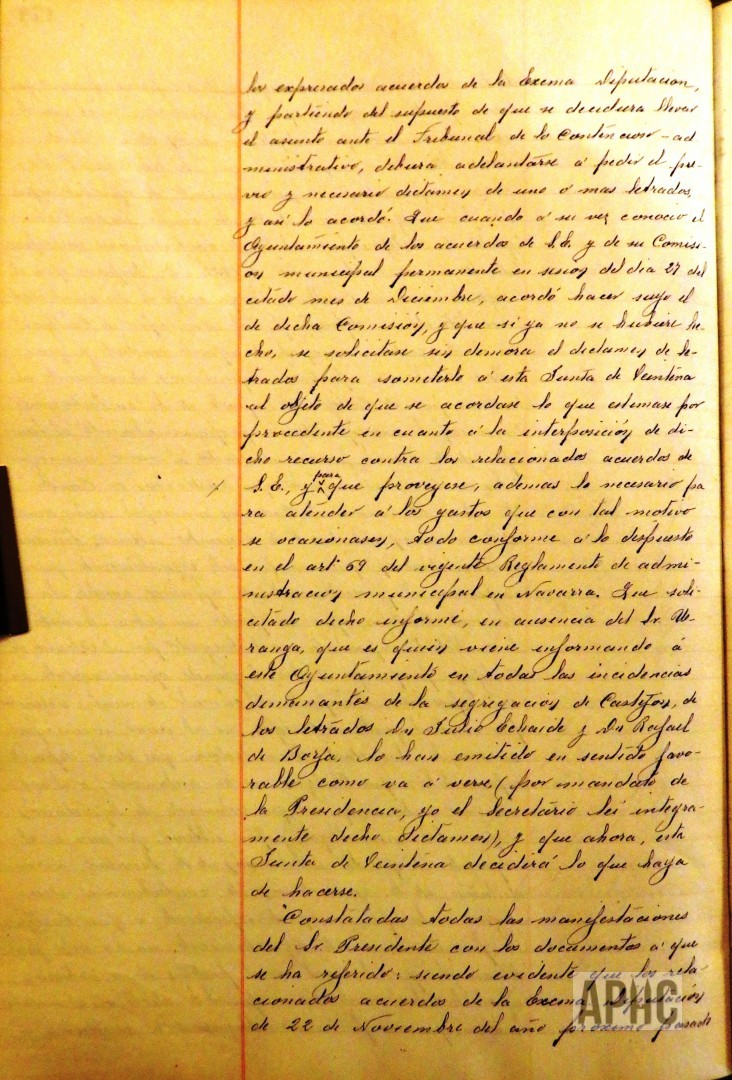 los expresados acuerdos de la Excma Diputación,
y partiendo del supuesto de que se decidiera llevar
el asunto ante el Tribunal de lo Contencioso-ad
ministrativo, debiera adelantarse á pedir el pre-
vio y necesario dictamen de uno ó mas letrados,
y así lo acordó. Que cuando á su vez conoció el
Ayuntamiento de los acuerdos de S.E. y de su Comisi-
on municipal permanente en sesion del dia 27 del
citado mes de Diciembre, acordó hacer suyo el
de dicha Comisión, y que si ya no se hubiere he-
cho, se solicitase sin demora el dictamen de le-
trados para someterlo á esta Junta de Veintena
al objeto de que se acordase lo que estimase por
procedente en cuanto á la interposición de di-
cho recurso contra los relacionados acuerdos de
S.E., y para que proveyese, ademas lo necesario pa
ra atender á los gastos que con tal motivo
se ocasionasen, todo conforme á lo dispuesto
en el artº 69 del vigente Reglamento de admi-
nistracion municipal en Navarra. Que soli-
citado dicho informe, en ausencia del Sr. U-
ranga, que es quien viene informando á
este Ayuntamiento en todas las incidencias
dimanantes de la segregacion de Castejon, de
los letrados Dn Julio Echaide y Dn Rafael
de Borja, lo han emitido en sentido favo-
rable como va á verse, (por mandato de
la Presidencia, yo el Secretario leí integra-
mente dicho dictamen), y que ahora, esta
Junta de Veintena decidirá lo que haya
de hacerse.
Constatadas todas las manifestaciones
del Sr. Presidente con los documentos á que
se ha referido: siendo evidente que los rela-
cionados acuerdos de la Excma Diputación
de 22 de Noviembre del año próximo pasado
APHC